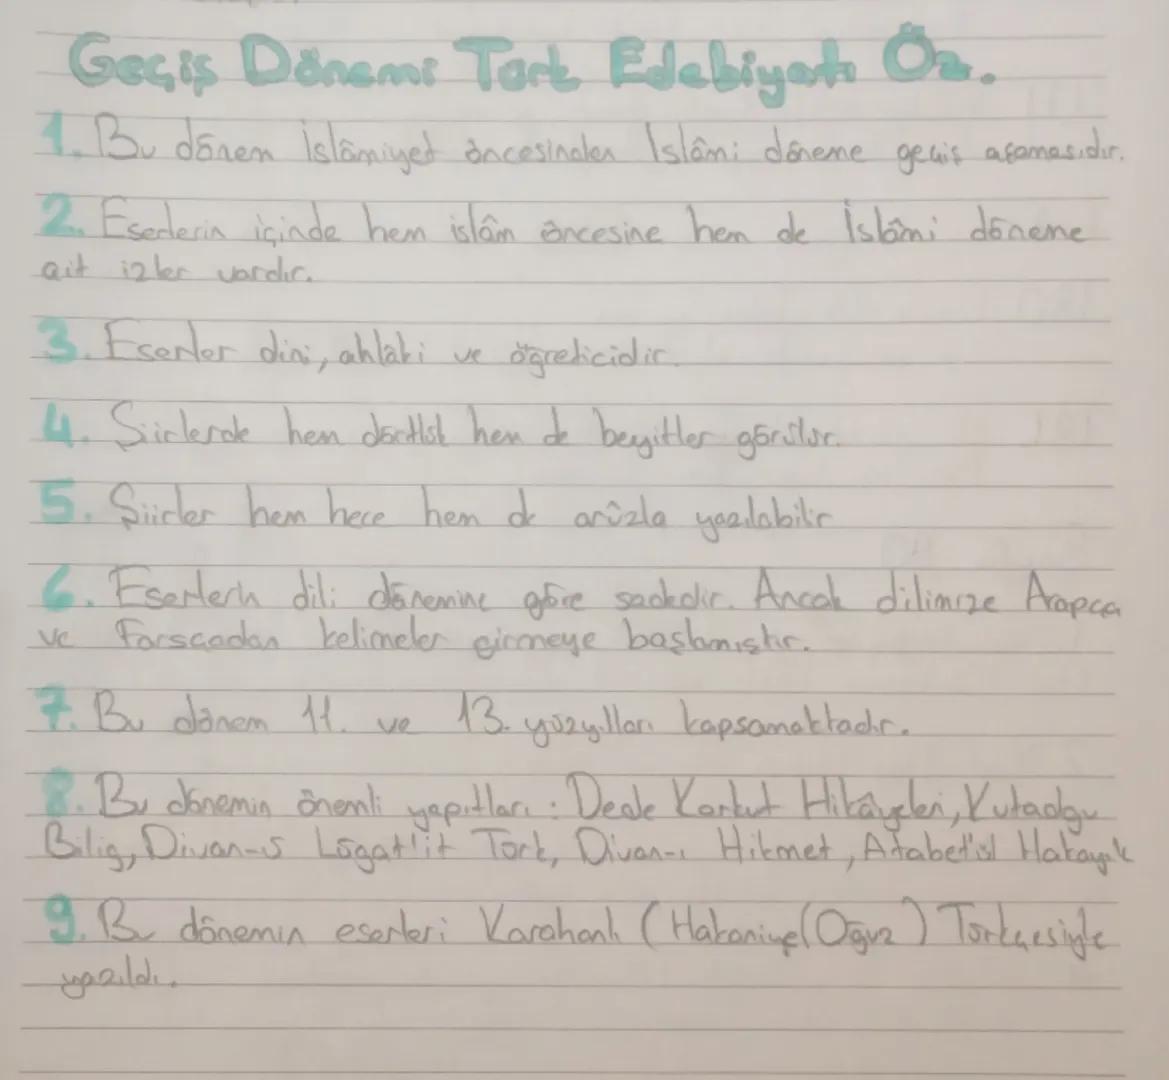 Geçiş Dönemi Türk Edebiyatı Öz.
1. Bu dönem İslâmiyet öncesinden İslâmi döneme geçiş aşamasıdır.
2. Eserlerin içinde hem islâm öncesine hem de İslâmi döneme
ait izler vardır.
3. Eserler dini, ahlâki ve öğreticidir.
4. Şiirlerde hem dörtlük hem de beyitler görülür.
5. Şiirler hem hece hem de arûzla yazılabilir
6. Eserlerin dili dönemine göre sadedir. Ancak dilimize Arapça
ve Farsçadan kelimeler girmeye başlamıştır.
7. Bu dönem 11. ve 13. yüzyılları kapsamaktadır.
8. Bu dönemin önemli yapıtları: Dede Korkut Hikâyeleri, Kutadgu
Bilig, Divan-ü Lügat'it Türk, Divan-ı Hikmet, Atabet'ül Hakayık
9. Bu dönemin eserleri Karahanlı (Hakaniye(Oğuz) Türkçesiyle
yazıldı.